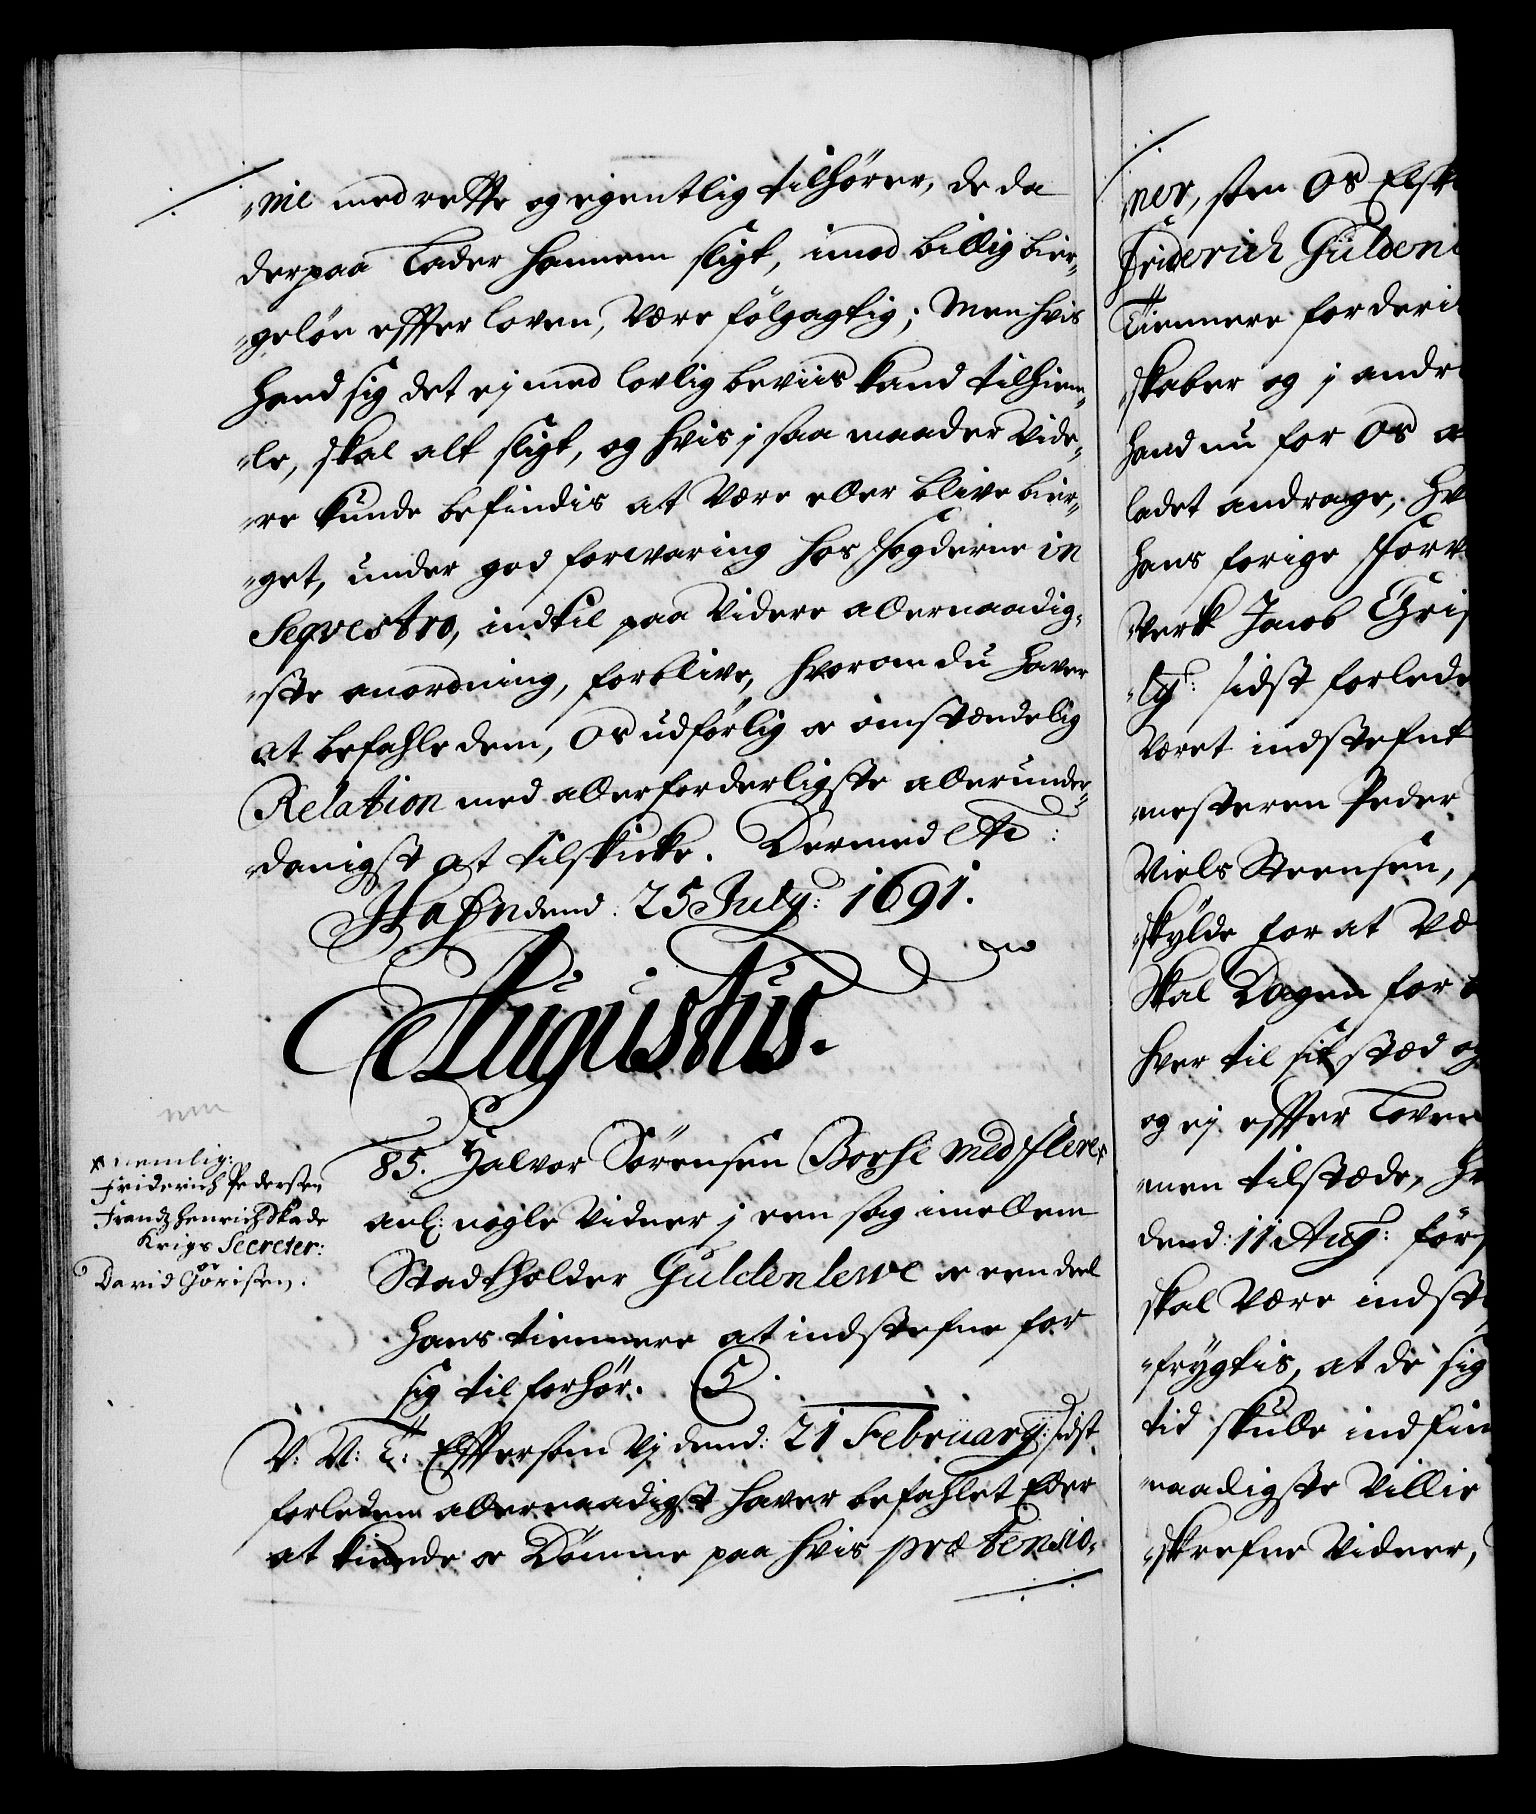 -nie med rette og egentlig tilhører, de da
derpaa lader hannem sligt, imod billig bier-
-geløn effter loven, være følgagtig; Men hvis
hand sig det ej med lovlig beviis kand tilhiem-
-le, skal alt sligt, og hvis j saa maader vide-
-re kunde befindis at være eller blive bier-
-get, under god forwaring hos fogderne in
Seqvestro, indtil paa videre allernaadig-
-ste anordning, forblive, hvorom du haver
at befahle dem, Os udførlig oc omstændelig
Relation med allerforderligste allerunder-
-danigst at tilskicke. Dermed etc:
Hafn dend: 25 July: 1691.
Augustus.
85. Halvor Sørensen Borse med flere
anl: nogle vidner j een sag imellem
Stadtholder Guldenlewe oc een deel
hans tiennere at indstefne for
sig til forhør. 5.
x nemlig:
Friderich Pedersen
Frandz Henrich Skade
Krigs Secreter:
oc
David Gørisen.
V: N: T: Effter som Vj dend: 21 February: sidst
forleden allernaadigst haver befahlet Eder
at kiende oc Dømme paa hvis prætensio-
ner, som Os Elsk
Friderich Güldenl
Tiennere for deri
skaber og j andr
hand nu for Os a
ladet andrage, hv
hans forige forv
Verk Jacob Chris
-ly: sidst forlede
været indstefnt
mesteren Peder
Niels Steensen,
skylde for at væ
skal Dagen for
hver til sit stæd og
og ej effter Loven
men tilstæde, h
dend: 11 Aug: førs
skal være indst
-frygtis, at de sig
tid skulle indfin
naadigste Villie
-skrefne vidner,